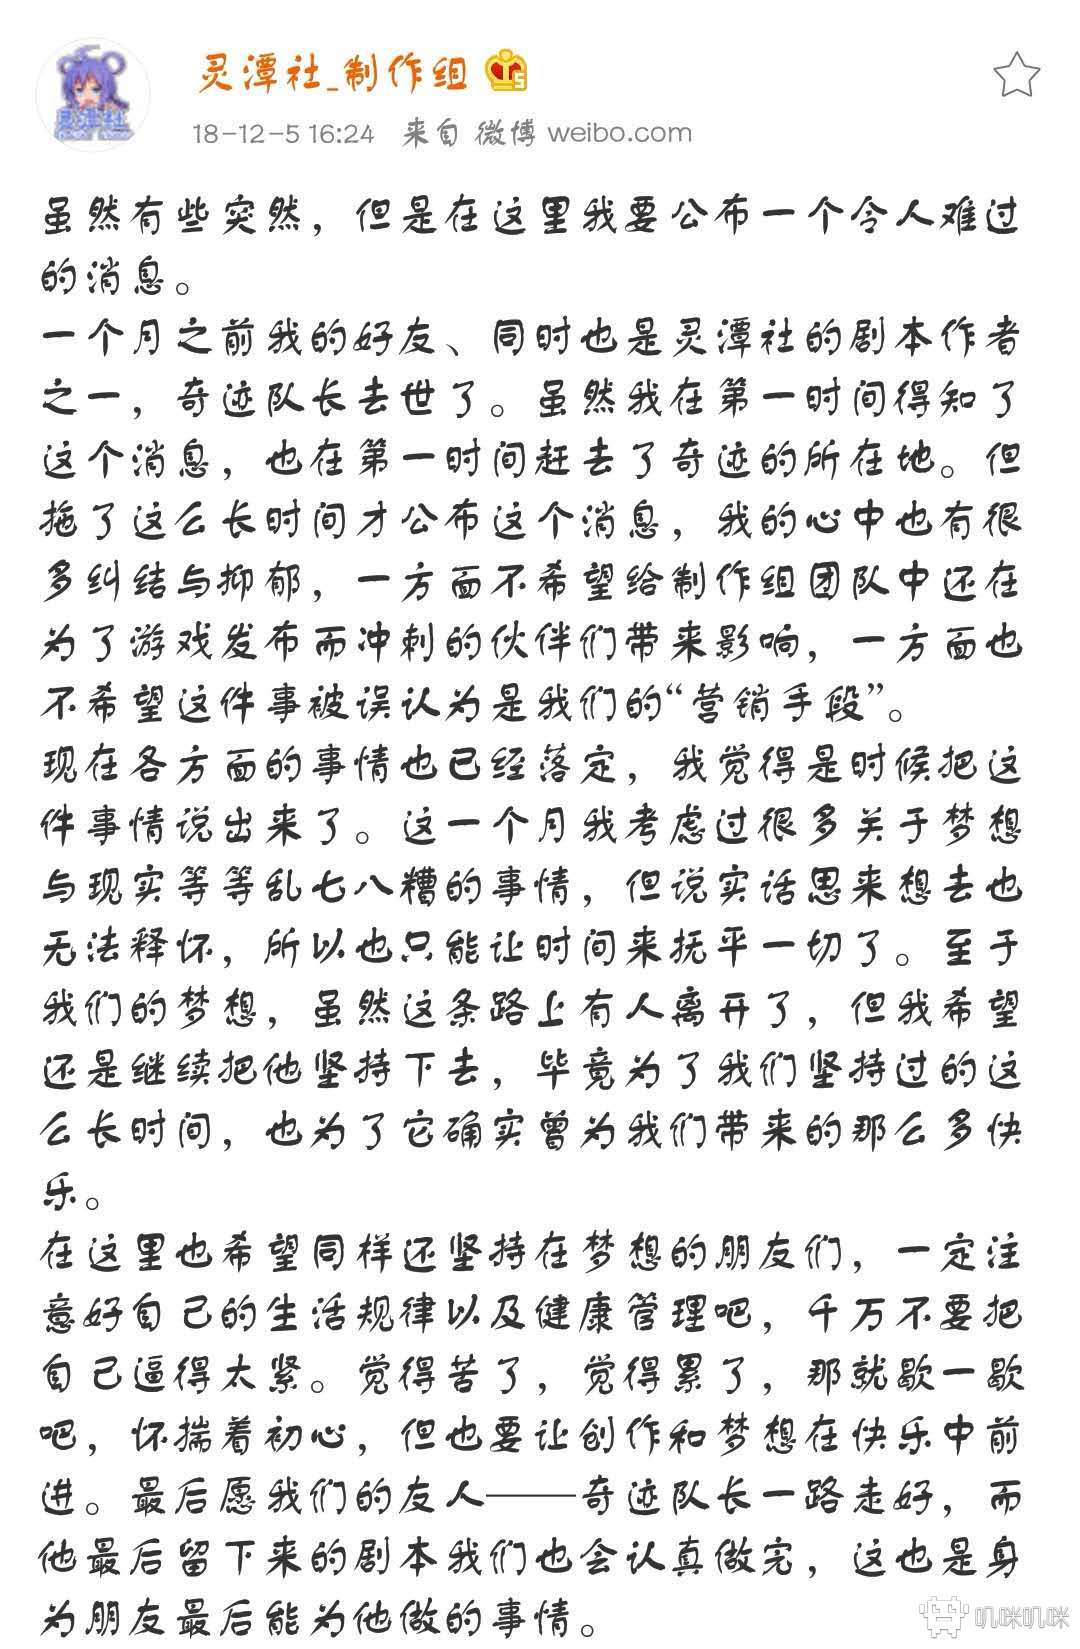 灵潭社_制作组
灵潭社
18-12-5 16:24 来自 微博 weibo.com
虽然有些突然，但是在这里我要公布一个令人难过
的消息。
一个月之前我的好友、同时也是灵潭社的剧本作者
之一，奇迹队长去世了。虽然我在第一时间得知了
这个消息，也在第一时间赶去了奇迹的所在地。但
拖了这么长时间才公布这个消息，我的心中也有很
多纠结与抑郁，一方面不希望给制作组团队中还在
为了游戏发布而冲刺的伙伴们带来影响，一方面也
不希望这件事被误认为是我们的“营销手段”。
现在各方面的事情也已经落定，我觉得是时候把这
件事情说出来了。这一个月我考虑过很多关于梦想
与现实等等乱七八糟的事情，但说实话思来想去也
无法释怀，所以也只能让时间来抚平一切了。至于
我们的梦想，虽然这条路上有人离开了，但我希望
还是继续把他坚持下去，毕竟为了我们坚持过的这
么长时间，也为了它确实曾为我们带来的那么多快
乐。
在这里也希望同样还坚持在梦想的朋友们，一定注
意好自己的生活规律以及健康管理吧，千万不要把
自己逼得太紧。觉得苦了，觉得累了，那就歇一歇
吧，怀揣着初心，但也要让创作和梦想在快乐中前
进。最后愿我们的友人——奇迹队长一路走好，而
他最后留下来的剧本我们也会认真做完，这也是身
为朋友最后能为他做的事情。
叽咪叽咪